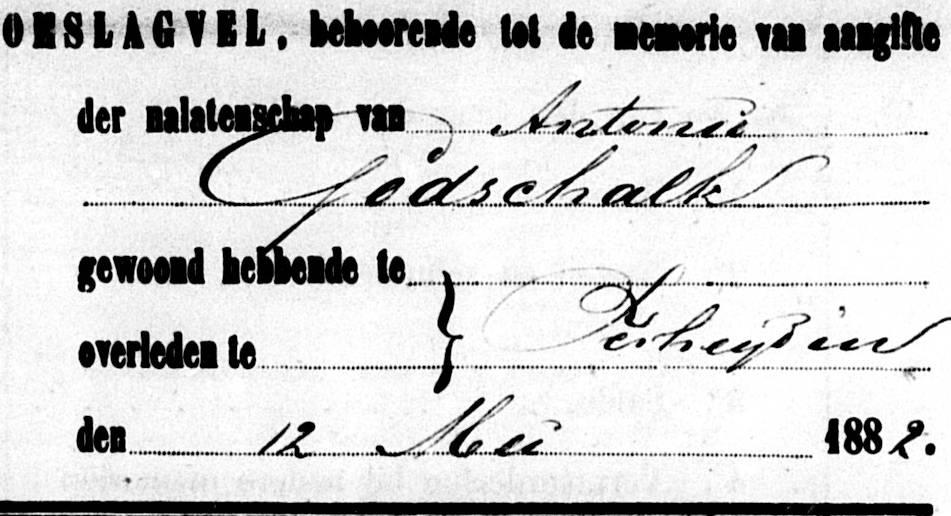 OMSLAGVEL, behoorende tot de memorie van aangifte
der nalatenschap van Antonie
Godschalk
gewoond hebbende te
overleden te } Terheijden
den 12 Mei 1882.